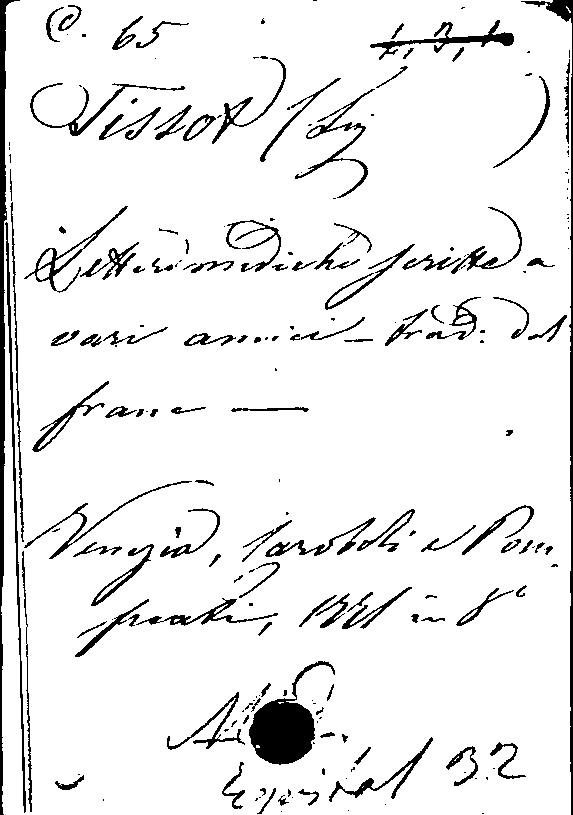 C. 65 1, 3, 1.
Tissot (Sig )
Lettere mediche scritte a
vari amici – trad: dal
franc —
Venezia, Caroboli e Pom
peati, 1771 in 8°
32